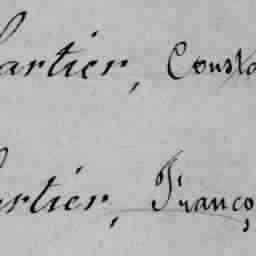 artier, Consta
rtier, Franço